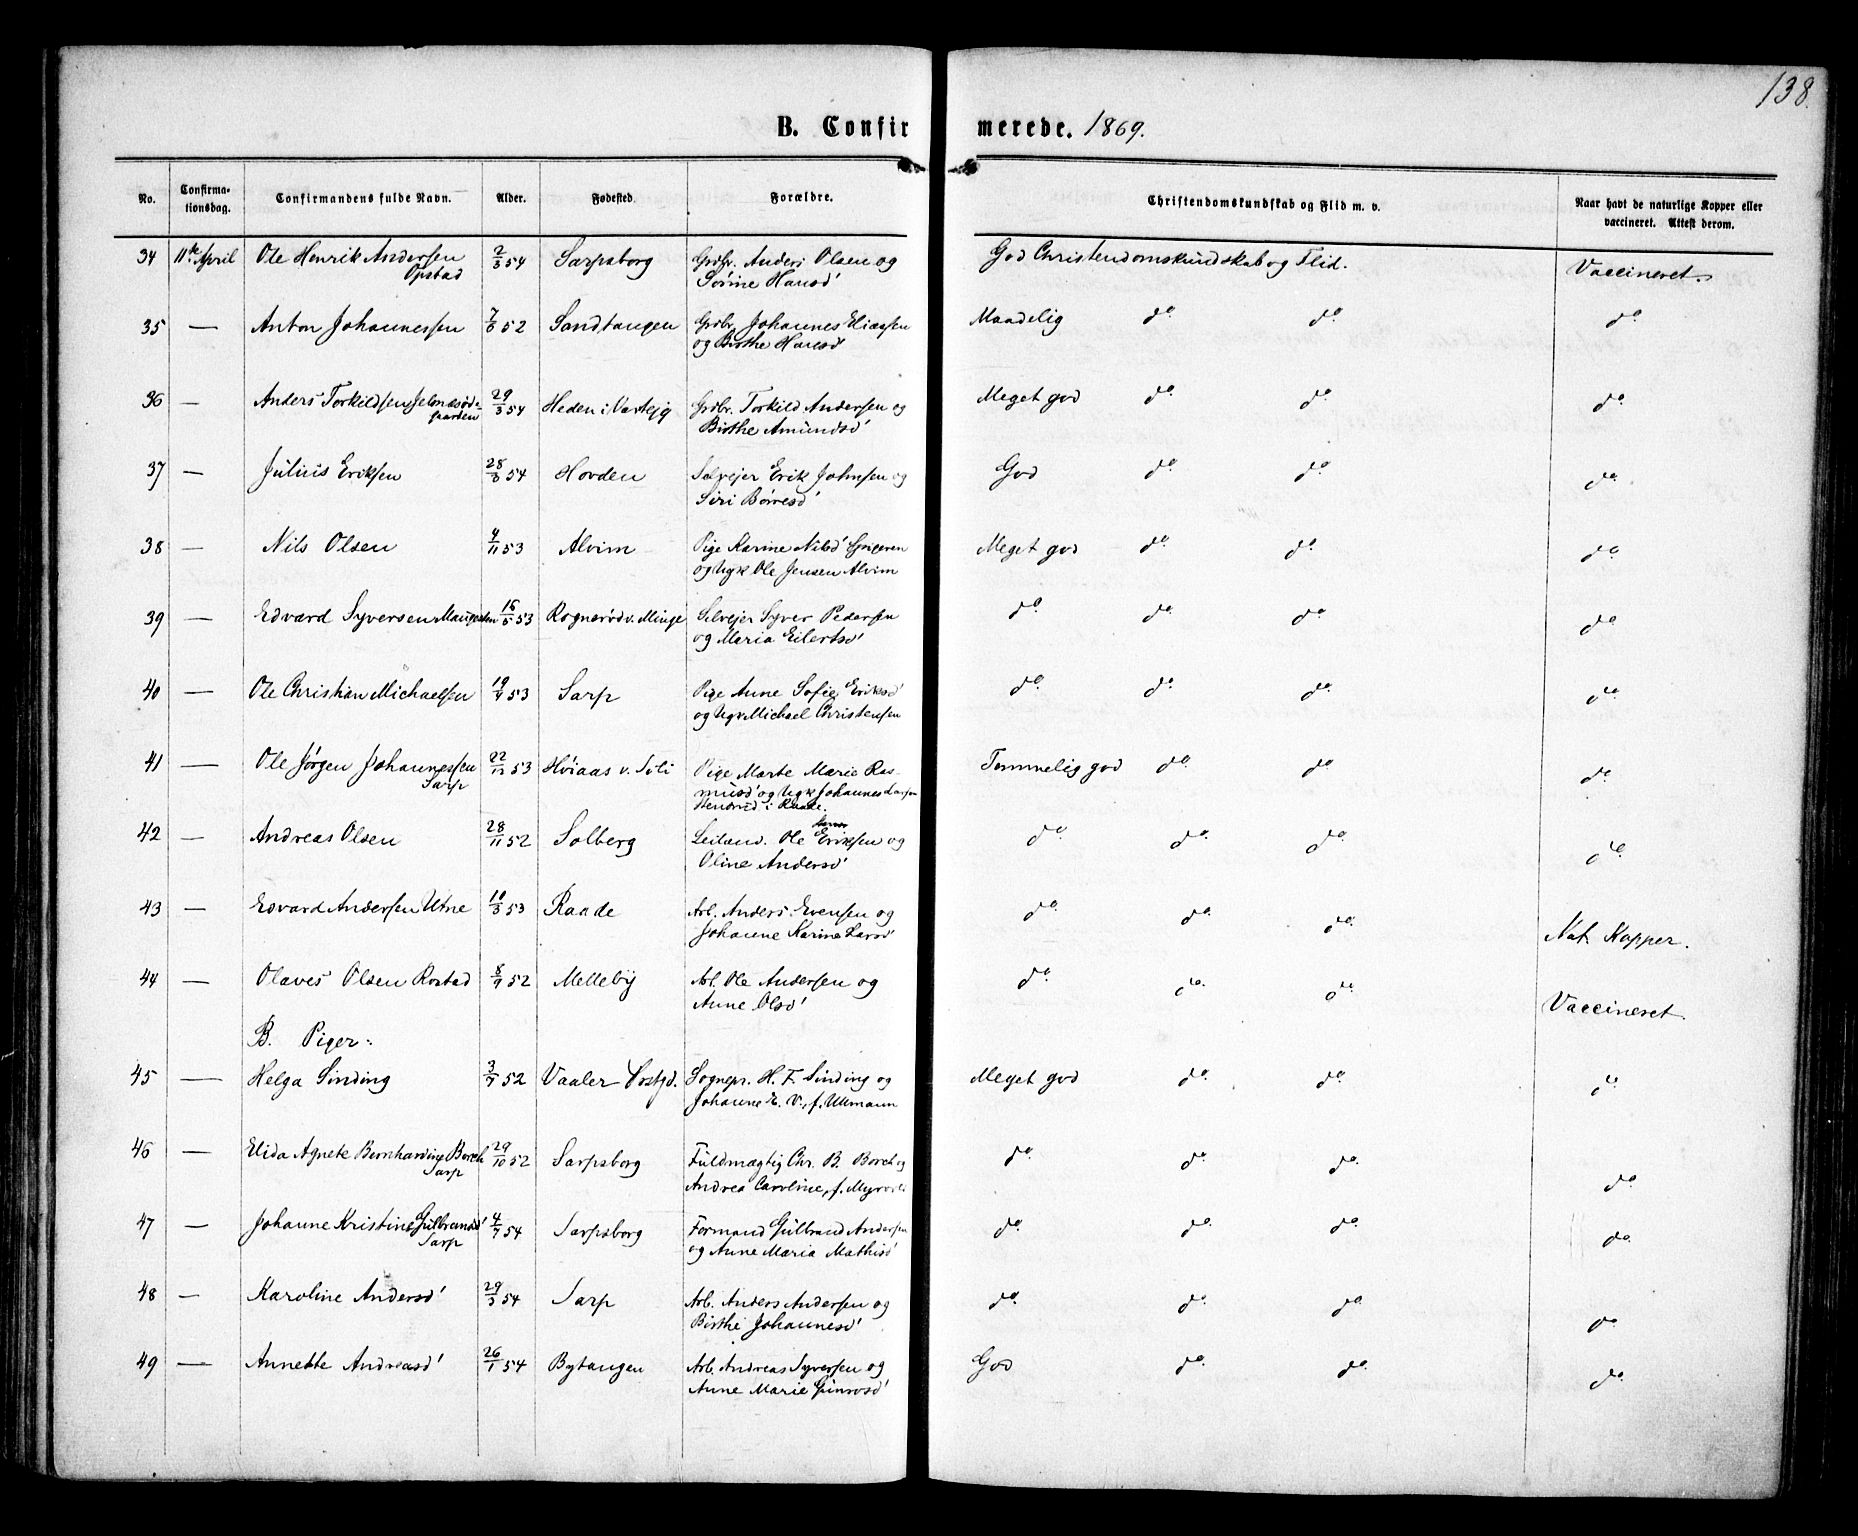 138.
B. Confirmerede. 1869.
No. Confirmationsdag. Confirmandens fulde Navn. Alder. Fødested. Forældre. Christendomskundskab og Flid m. v. Naar havt de naturlige Kopper eller vaccineret. Attest derom.
34 11te April Ole Henrik Andersen 2/3 54 Sarpsborg Grdbr. Anders Olsen og God Christendomskundskab og Flid. Vaccineret.
Opstad Sørine Hansd'
35 — Anton Johannessen 7/6 52 Sandtangen Grdbr. Johannes Eliassen Maadelig do. do. do.
og Birthe Hansd'
36 — Anders Torkildsen 29/3 54 Heden i Varteig Grdbr. Torkild Andersen og Meget god do. do. do.
Birthe Amundsd'
37 — Julius Eriksen 28/3 54 Hovden Selvejer Erik Johnsen og God do. do. do.
Siri Børresd'
38 — Nils Olsen 4/11 53 Alvim Pige Karine Nilsd' Meget god do. do. do.
og Ugk Ole Jensen Alvim
39 — Edvard Syversen 16/5 53 Rognerød v. Minge Selvejer Syver Pedersen do. do. do. do.
og Maria Eilertsd'
40 — Ole Christian Michaelsen 19/9 53 Sarp Pige Anne Sofie Eriksd' do. do. do. do.
og Michael Christensen
41 — Ole Jørgen Johannessen 22/12 53 v. Soli Pige Marte Marie Ras- Temmelig god do. do. do.
Sarp musd' og Ugk Johannes Larsen
i Raade.
42 — Andreas Olsen 28/11 52 Solberg Leiland. Ole Eriksen og do. do. do. do.
Oline Andersd'
43 — Edvard Andersen Utne 10/3 53 Raade Arb. Anders Evensen og do. do. do. Nat. Kopper.
Johanne Karine Larsd'
44 — Olaves Olsen Rostad 8/9 52 Melleby Arb. Ole Andersen og do. do. do. Vaccineret.
Anne Olsd'
B. Piger:
45 — Helga Sinding 3/9 52 Vaaler Sognepr. H. F. Sinding og Meget god do. do. do.
Johanne E. V., f. Ullmann
46 — Elida Agnete Bernhardine Borch 29/10 52 Sarpsborg Fuldmægtig Chr. B. Borch og do. do. do. do.
Sarp Andrea Caroline, f.
47 — Johanne Kristine Gulbrandsd' 4/7 54 Sarpsborg Formand Gulbrand Andersen do. do. do. do.
Sarp og Anne Maria Mathisd'
48 — Karoline Andersd' 29/3 54 Sarp Arb. Anders Andersen og do. do. do. do.
Birthe Johannesd'
49 — Annette Andreasd' 26/1 54 Bytangen Arb. Andreas Syversen og God do. do. do.
Anne Marie Gunrosd'